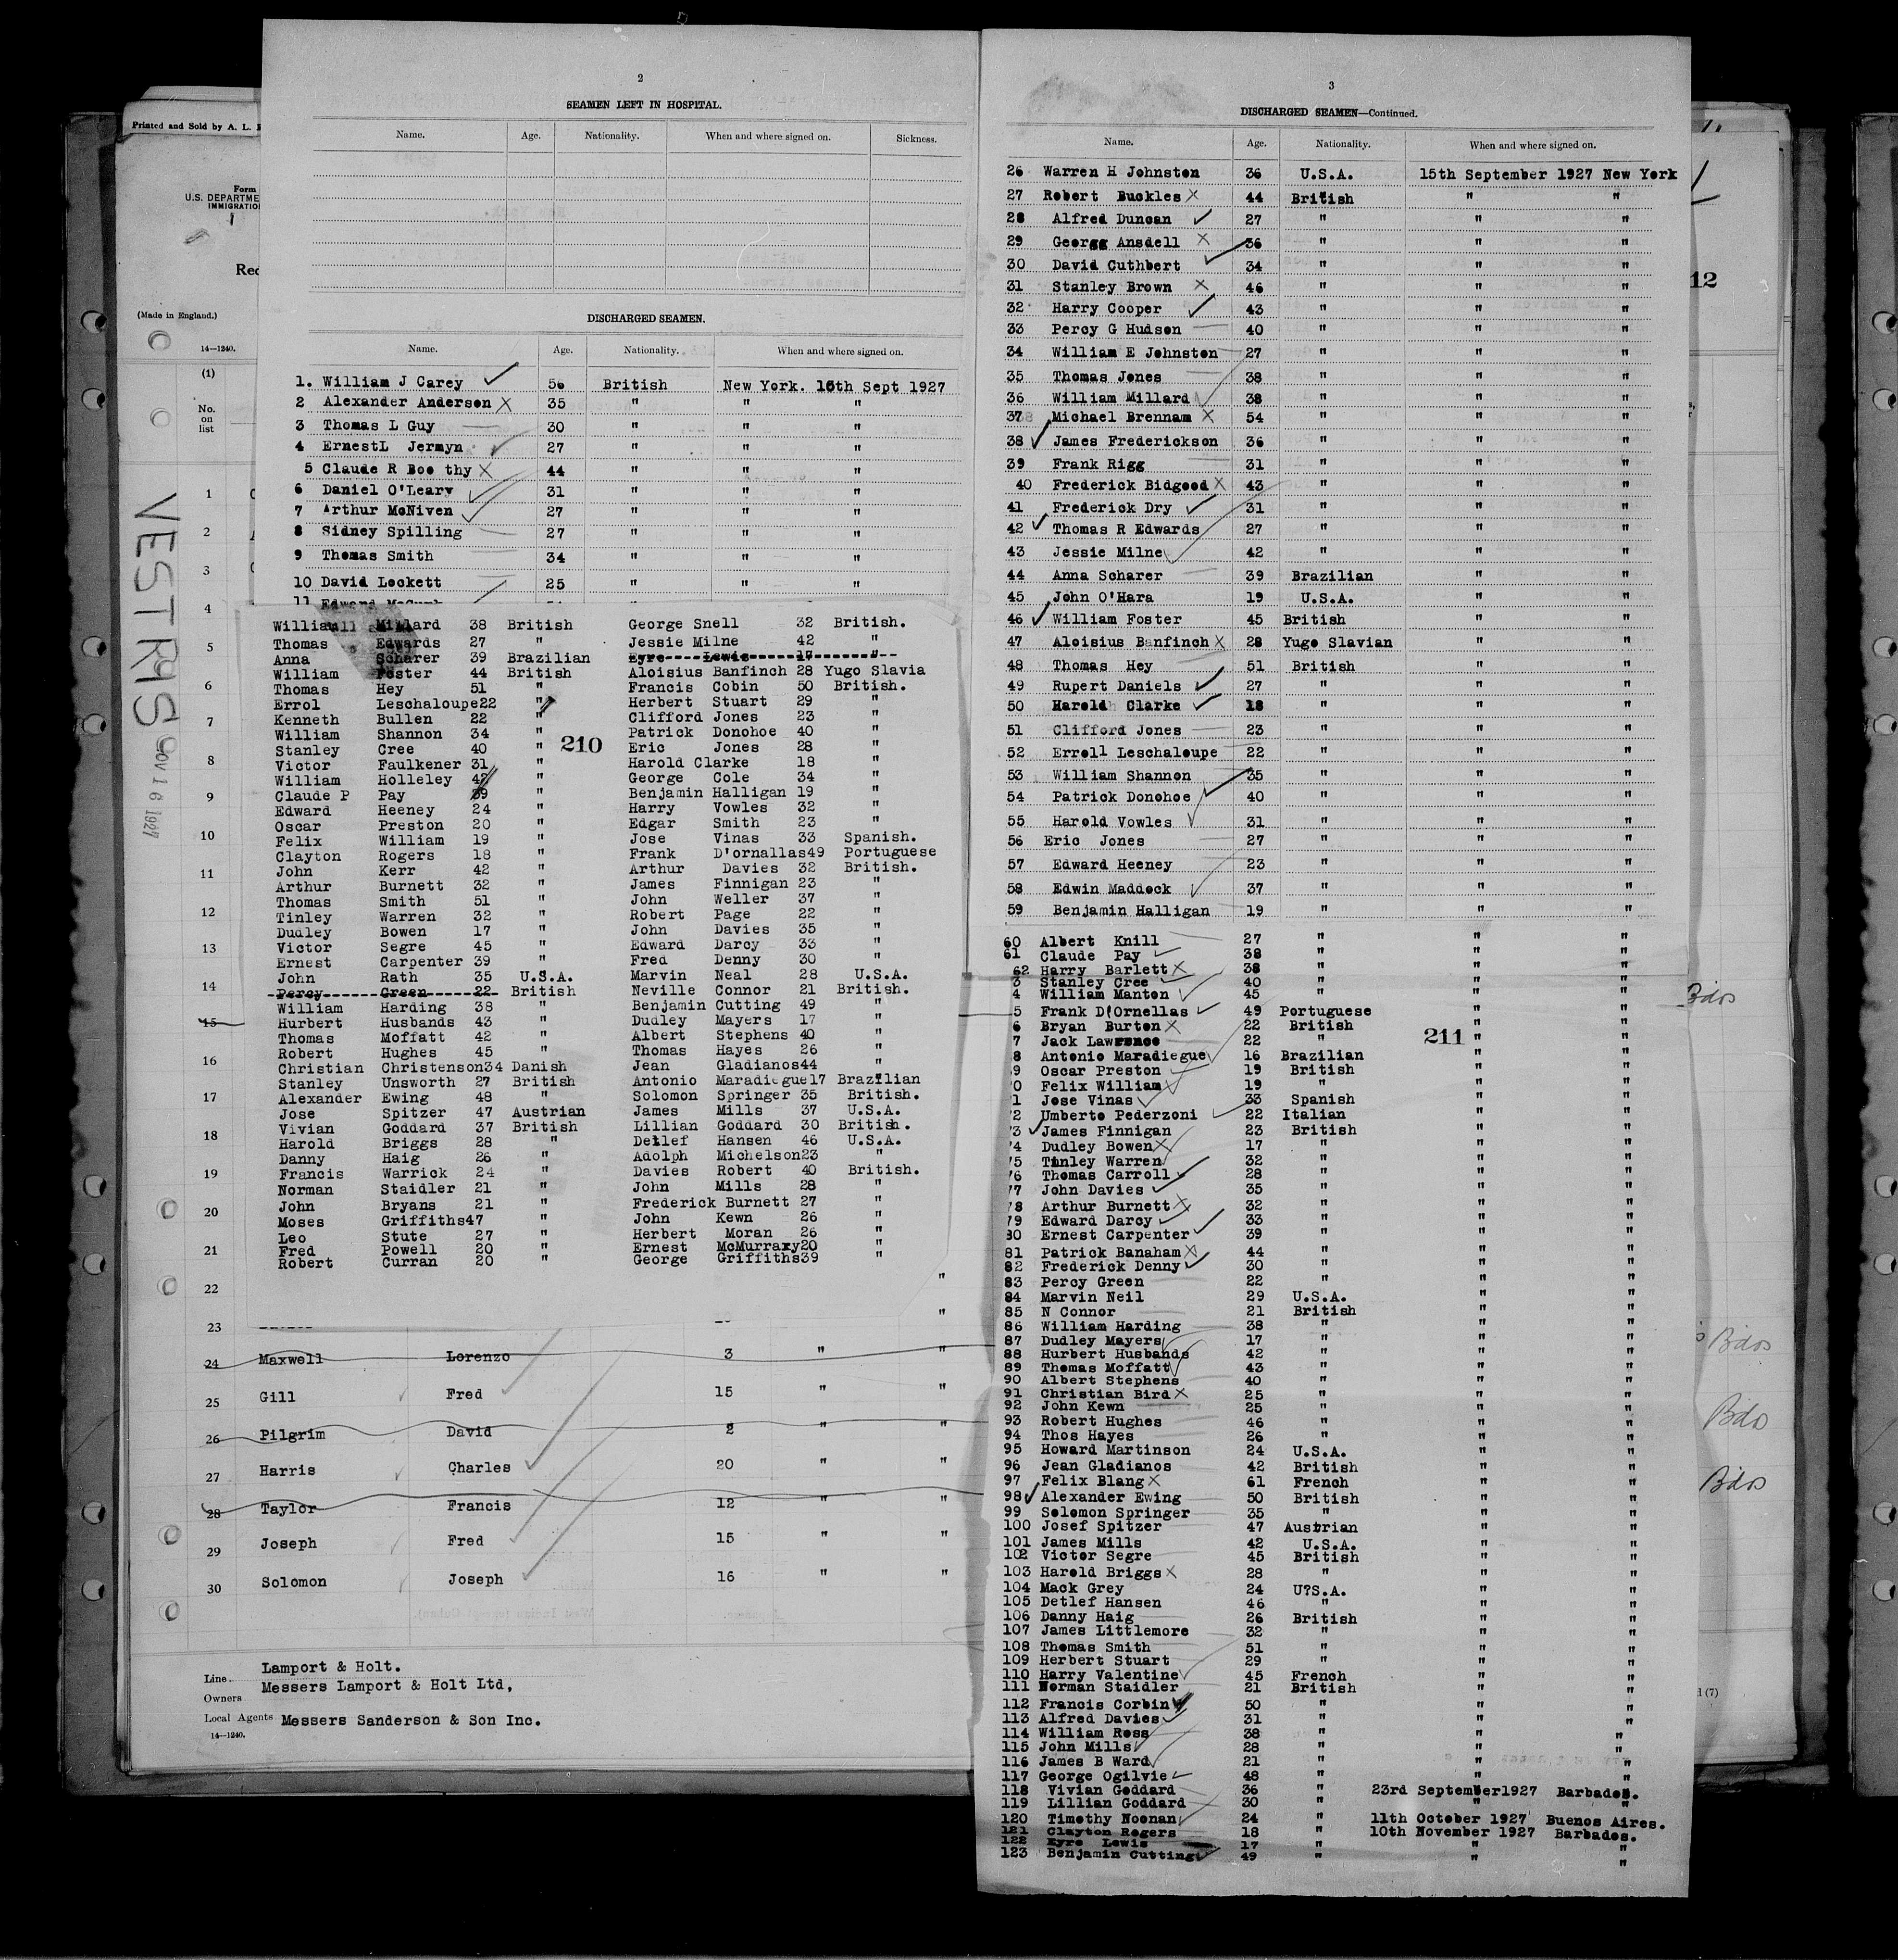 Printed and Sold by A. L.
Form
U.S. DEPARTME
IMMIGRATIO
Rec
(Made in England.)
14—1240.
(1)
No.
on
list
VESTRIS
NOV 16 1927
1
2
3
4
5
6
7
8
9
10
11
12
13
14
15
16
17
18
19
20
21
22 "
23 "
24 Maxwell Lorenzo 3 " "
25 Gill Fred 15 " "
26 Pilgrim David 2 " "
27 Harris Charles 20 " "
28 Taylor Francis 12 " "
29 Joseph Fred 15 " "
30 Solomon Joseph 16 " "
Line Lamport & Holt.
Owners Messers Lamport & Holt Ltd,
Local Agents Messers Sanderson & Son Inc.
14—1240.
2
SEAMEN LEFT IN HOSPITAL.
Name. Age. Nationality. When and where signed on. Sickness.
DISCHARGED SEAMEN.
Name. Age. Nationality. When and where signed on.
1. William J Carey 56 British New York. 15th Sept 1927
2 Alexander Anderson 35 " " "
3 Thomas L Guy 30 " " "
4 ErnestL Jermyn 27 " " "
5 Claude R Boo thy 44 " " "
6 Daniel O'Leary 31 " " "
7 Arthur McNiven 27 " " "
8 Sidney Spilling 27 " " "
9 Thomas Smith 34 " " "
10 David Lockett 25 " " "
11 Edward
William Millard 38 British George Snell 32 British.
Thomas Edwards 27 " Jessie Milne 42 "
Anna Scharer 39 Brazilian Eyre Lewis 17 "
William Foster 44 British Aloisius Banfinch 28 Yugo Slavia
Thomas Hey 51 " Francis Cobin 50 British.
Errol Leschaloupe22 " Herbert Stuart 29 "
Kenneth Bullen 22 " Clifford Jones 23 "
William Shannon 34 " Patrick Donohoe 40 "
Stanley Cree 40 " 210 Eric Jones 28 "
Victor Faulkener 31 " Harold Clarke 18 "
William Holleley 42 " George Cole 34 "
Claude P Pay 39 " Benjamin Halligan 19 "
Edward Heeney 24 " Harry Vowles 32 "
Oscar Preston 20 " Edgar Smith 23 "
Felix William 19 " Jose Vinas 33 Spanish.
Clayton Rogers 18 " Frank D'ornallas49 Portuguese
John Kerr 42 " Arthur Davies 32 British.
Arthur Burnett 32 " James Finnigan 23 "
Thomas Smith 51 " John Weller 37 "
Tinley Warren 32 " Robert Page 22 "
Dudley Bowen 17 " John Davies 35 "
Victor Segre 45 " Edward Darcy 33 "
Ernest Carpenter 39 " Fred Denny 30 "
John Rath 35 U.S.A. Marvin Neal 28 U.S.A.
Percy Green 22 British Neville Connor 21 British.
William Harding 38 " Benjamin Cutting 49 "
Hurbert Husbands 43 " Dudley Mayers 17 "
Thomas Moffatt 42 " Albert Stephens 40 "
Robert Hughes 45 " Thomas Hayes 26 "
Christian Christenson34 Danish Jean Gladianos44 "
Stanley Unsworth 27 British Antonio Maradiegue17 Brazilian
Alexander Ewing 48 " Solomon Springer 35 British.
Jose Spitzer 47 Austrian James Mills 37 U.S.A.
Vivian Goddard 37 British Lillian Goddard 30 British.
Harold Briggs 28 " Detlef Hansen 46 U.S.A.
Danny Haig 26 " Adolph Michelson23 "
Francis Warrick 24 " Davies Robert 40 British.
Norman Staidler 21 " John Mills 28 "
John Bryans 21 " Frederick Burnett 27 "
Moses Griffiths47 " John Kewn 26 "
Leo Stute 27 " Herbert Moran 26 "
Fred Powell 20 " Ernest McMurraxy20 "
Robert Curran 20 " George Griffiths39 "
3
DISCHARGED SEAMEN—Continued.
Name. Age. Nationality. When and where signed on.
26 Warren H Johnston 36 U.S.A. 15th September 1927 New York
27 Robert Buckles 44 British " "
28 Alfred Duncan 27 " " "
29 Georgg Ansdell 36 " " "
30 David Cuthbert 34 " " "
31 Stanley Brown 46 " " "
32 Harry Cooper 43 " " "
33 Percy G Hudson 40 " " "
34 William E Johnston 27 " " "
35 Thomas Jones 38 " " "
36 William Millard 38 " " "
37 Michael Brennam 54 " " "
38 James Frederickson 36 " " "
39 Frank Rigg 31 " " "
40 Frederick Bidgood 43 " " "
41 Frederick Dry 31 " " "
42 Thomas R Edwards 27 " " "
43 Jessie Milne 42 " " "
44 Anna Scharer 39 Brazilian " "
45 John O'Hara 19 U.S.A. " "
46 William Foster 45 British " "
47 Aloisius Banfinch 28 Yugo Slavian " "
48 Thomas Hey 51 British " "
49 Rupert Daniels 27 " " "
50 Harold Clarke 18 " " "
51 Clifford Jones 23 " " "
52 Erroll Leschaloupe 22 " " "
53 William Shannon 35 " " "
54 Patrick Donohoe 40 " " "
55 Harold Vowles 31 " " "
56 Eric Jones 27 " " "
57 Edward Heeney 23 " " "
58 Edwin Maddock 37 " " "
59 Benjamin Halligan 19 " " "
60 Albert Knill 27 " " "
61 Claude Pay 38 " " "
62 Harry Barlett 38 " " "
3 Stanley Cree 40 " " "
4 William Manton 45 " " "
5 Frank D'Ornellas 49 Portuguese " "
6 Bryan Burton 22 British " "
7 Jack Lawrence 22 " 211 " "
8 Antonio Maradiegue 16 Brazilian " "
9 Oscar Preston 19 British " "
0 Felix William 19 " " "
1 Jose Vinas 33 Spanish " "
2 Umberto Pederzoni 22 Italian " "
3 James Finnigan 23 British " "
4 Dudley Bowen 17 " " "
5 Tinley Warren 32 " " "
76 Thomas Carroll 28 " " "
77 John Davies 35 " " "
78 Arthur Burnett 32 " " "
79 Edward Darcy 33 " " "
80 Ernest Carpenter 39 " " "
81 Patrick Banaham 44 " " "
82 Frederick Denny 30 " " "
83 Percy Green 22 " " "
84 Marvin Neil 29 U.S.A. " "
85 N Connor 21 British " "
86 William Harding 38 " " "
87 Dudley Mayers 17 " " "
88 Hurbert Husbands 42 " " "
89 Thomas Moffatt 43 " " "
90 Albert Stephens 40 " " "
91 Christian Bird 25 " " "
92 John Kewn 25 " " "
93 Robert Hughes 46 " " "
94 Thos Hayes 26 " " "
95 Howard Martinson 24 U.S.A. " "
96 Jean Gladianos 42 British " "
97 Felix Blang 61 French " "
98 Alexander Ewing 50 British " "
99 Solomon Springer 35 " " "
100 Josef Spitzer 47 Austrian " "
101 James Mills 42 U.S.A. " "
102 Victor Segre 45 British " "
103 Harold Briggs 28 " " "
104 Mack Grey 24 U?S.A. " "
105 Detlef Hansen 46 " " "
106 Danny Haig 26 British " "
107 James Littlemore 32 " " "
108 Thomas Smith 51 " " "
109 Herbert Stuart 29 " " "
110 Harry Valentine 45 French " "
111 Norman Staidler 21 British " "
112 Francis Corbin 50 " " "
113 Alfred Davies 31 " " "
114 William Ross 38 " " "
115 John Mills 28 " " "
116 James B Ward 21 " " "
117 George Ogilvie 48 " " "
118 Vivian Goddard 36 " 23rd September1927 Barbados.
119 Lillian Goddard 30 " " "
120 Timothy Noonan 24 " 11th October 1927 Buenos Aires.
121 Clayton Rogers 18 " 10th November 1927 Barbados.
122 Eyre Lewis 17 " " "
123 Benjamin Cutting 49 " " "
12
Bdos
Bdos
Bdo
Bdos
(7)